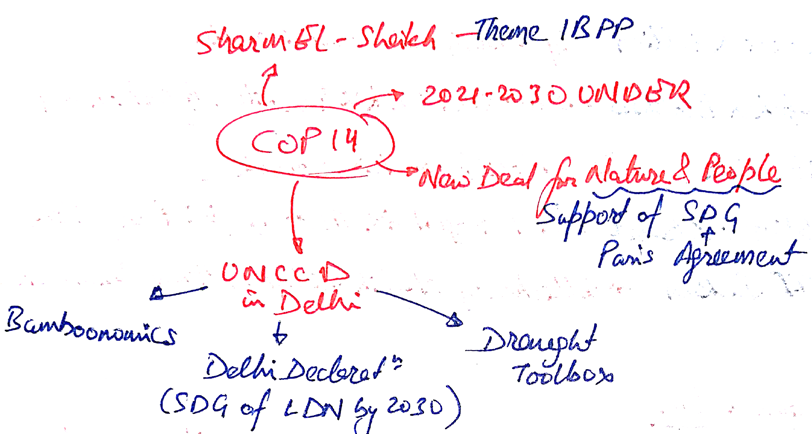 Sharm EL-Sheikh - Theme IBPP
2021-2030.UNDER
COP 14
New Deal for Nature & People
Support of SDG
Paris Agreement
UNCCD
in Delhi
Bamboonomics
Drought
Toolbox
Delhi Declaratn
(SDG of LDN by 2030)